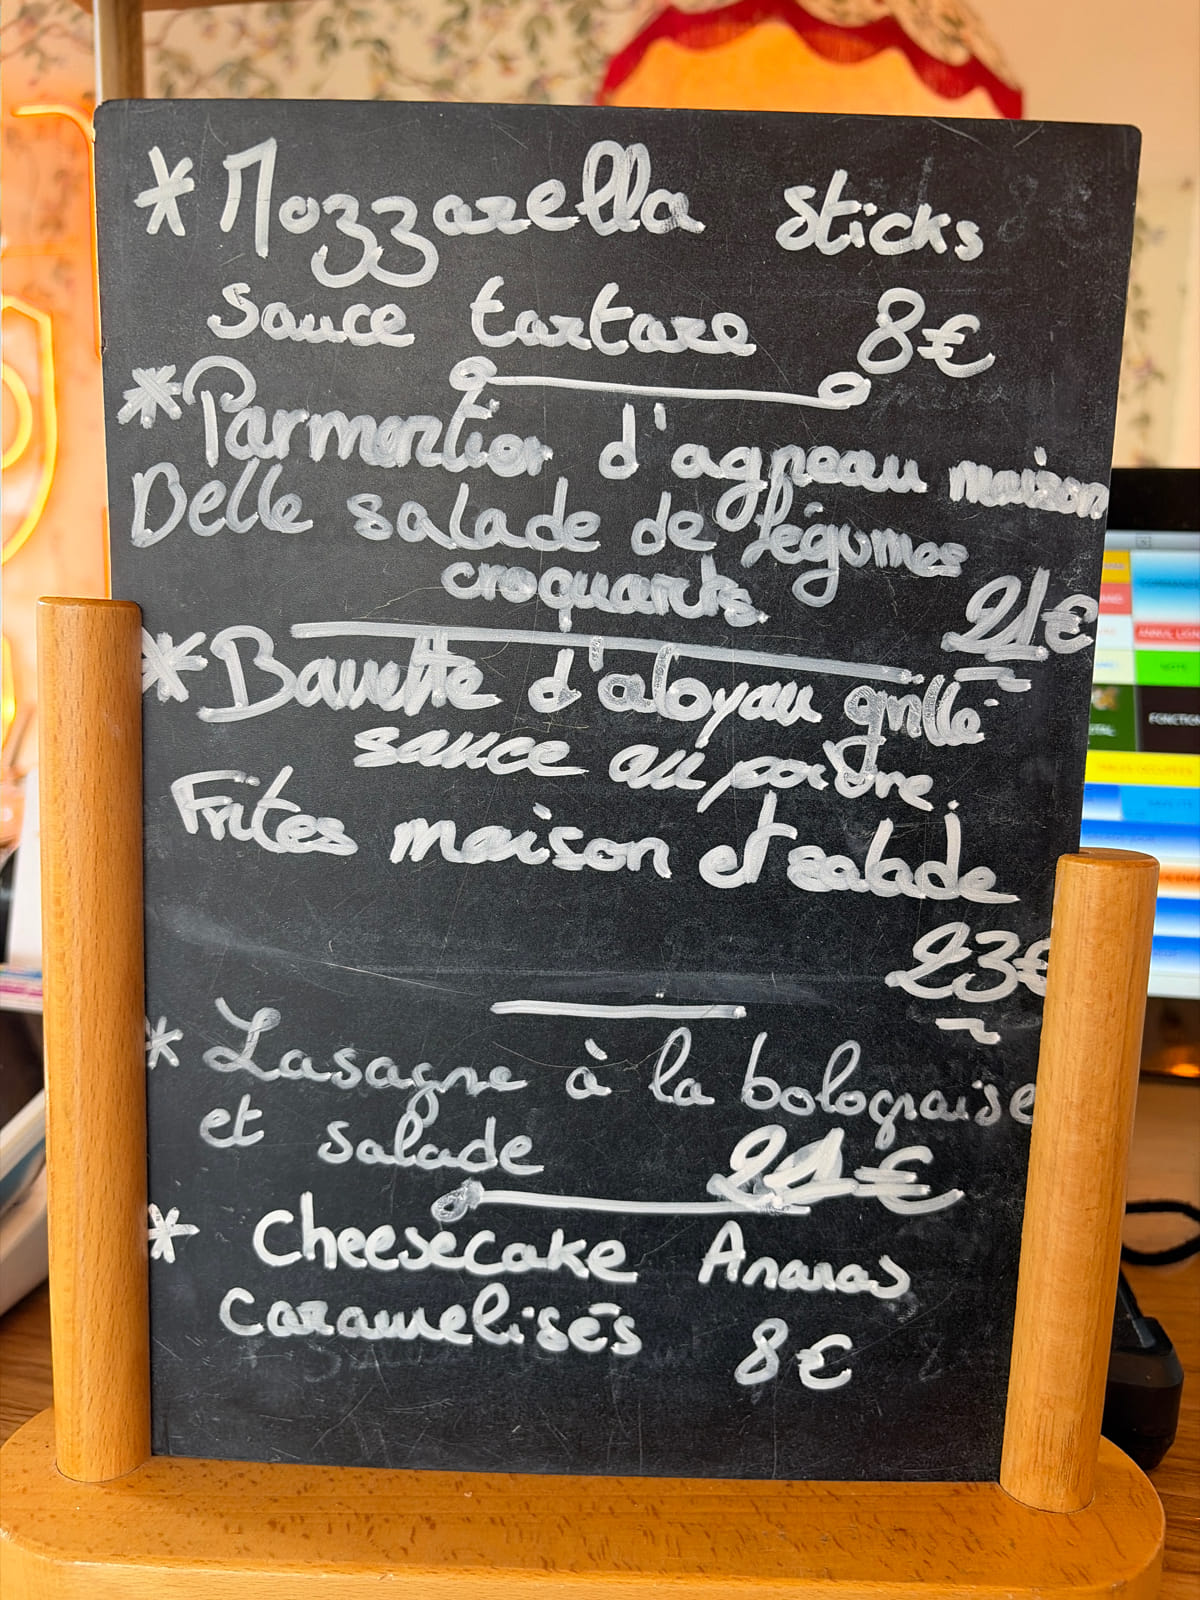 * Mozzarella sticks
sauce tartare 8€
* Parmentier d'agneau maison
Belle salade de légumes
croquants 21€
* Bavette d'aloyau grillé
sauce au poivre.
Frites maison et salade
23€
* Lasagne à la bolognaise
et salade 21€
* Cheesecake Ananas
Caramelisés 8€
ANNUL LIGN
NOTE
FONCTIO